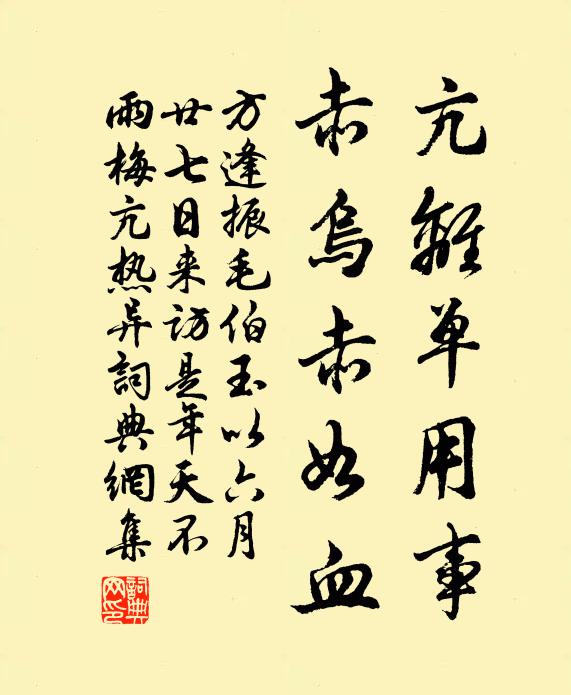 亢離单用事
赤烏赤如血
方逢振毛伯玉以六月
廿七日来訪是年天不
雨梅亢热异詞典網集
詞典
网印